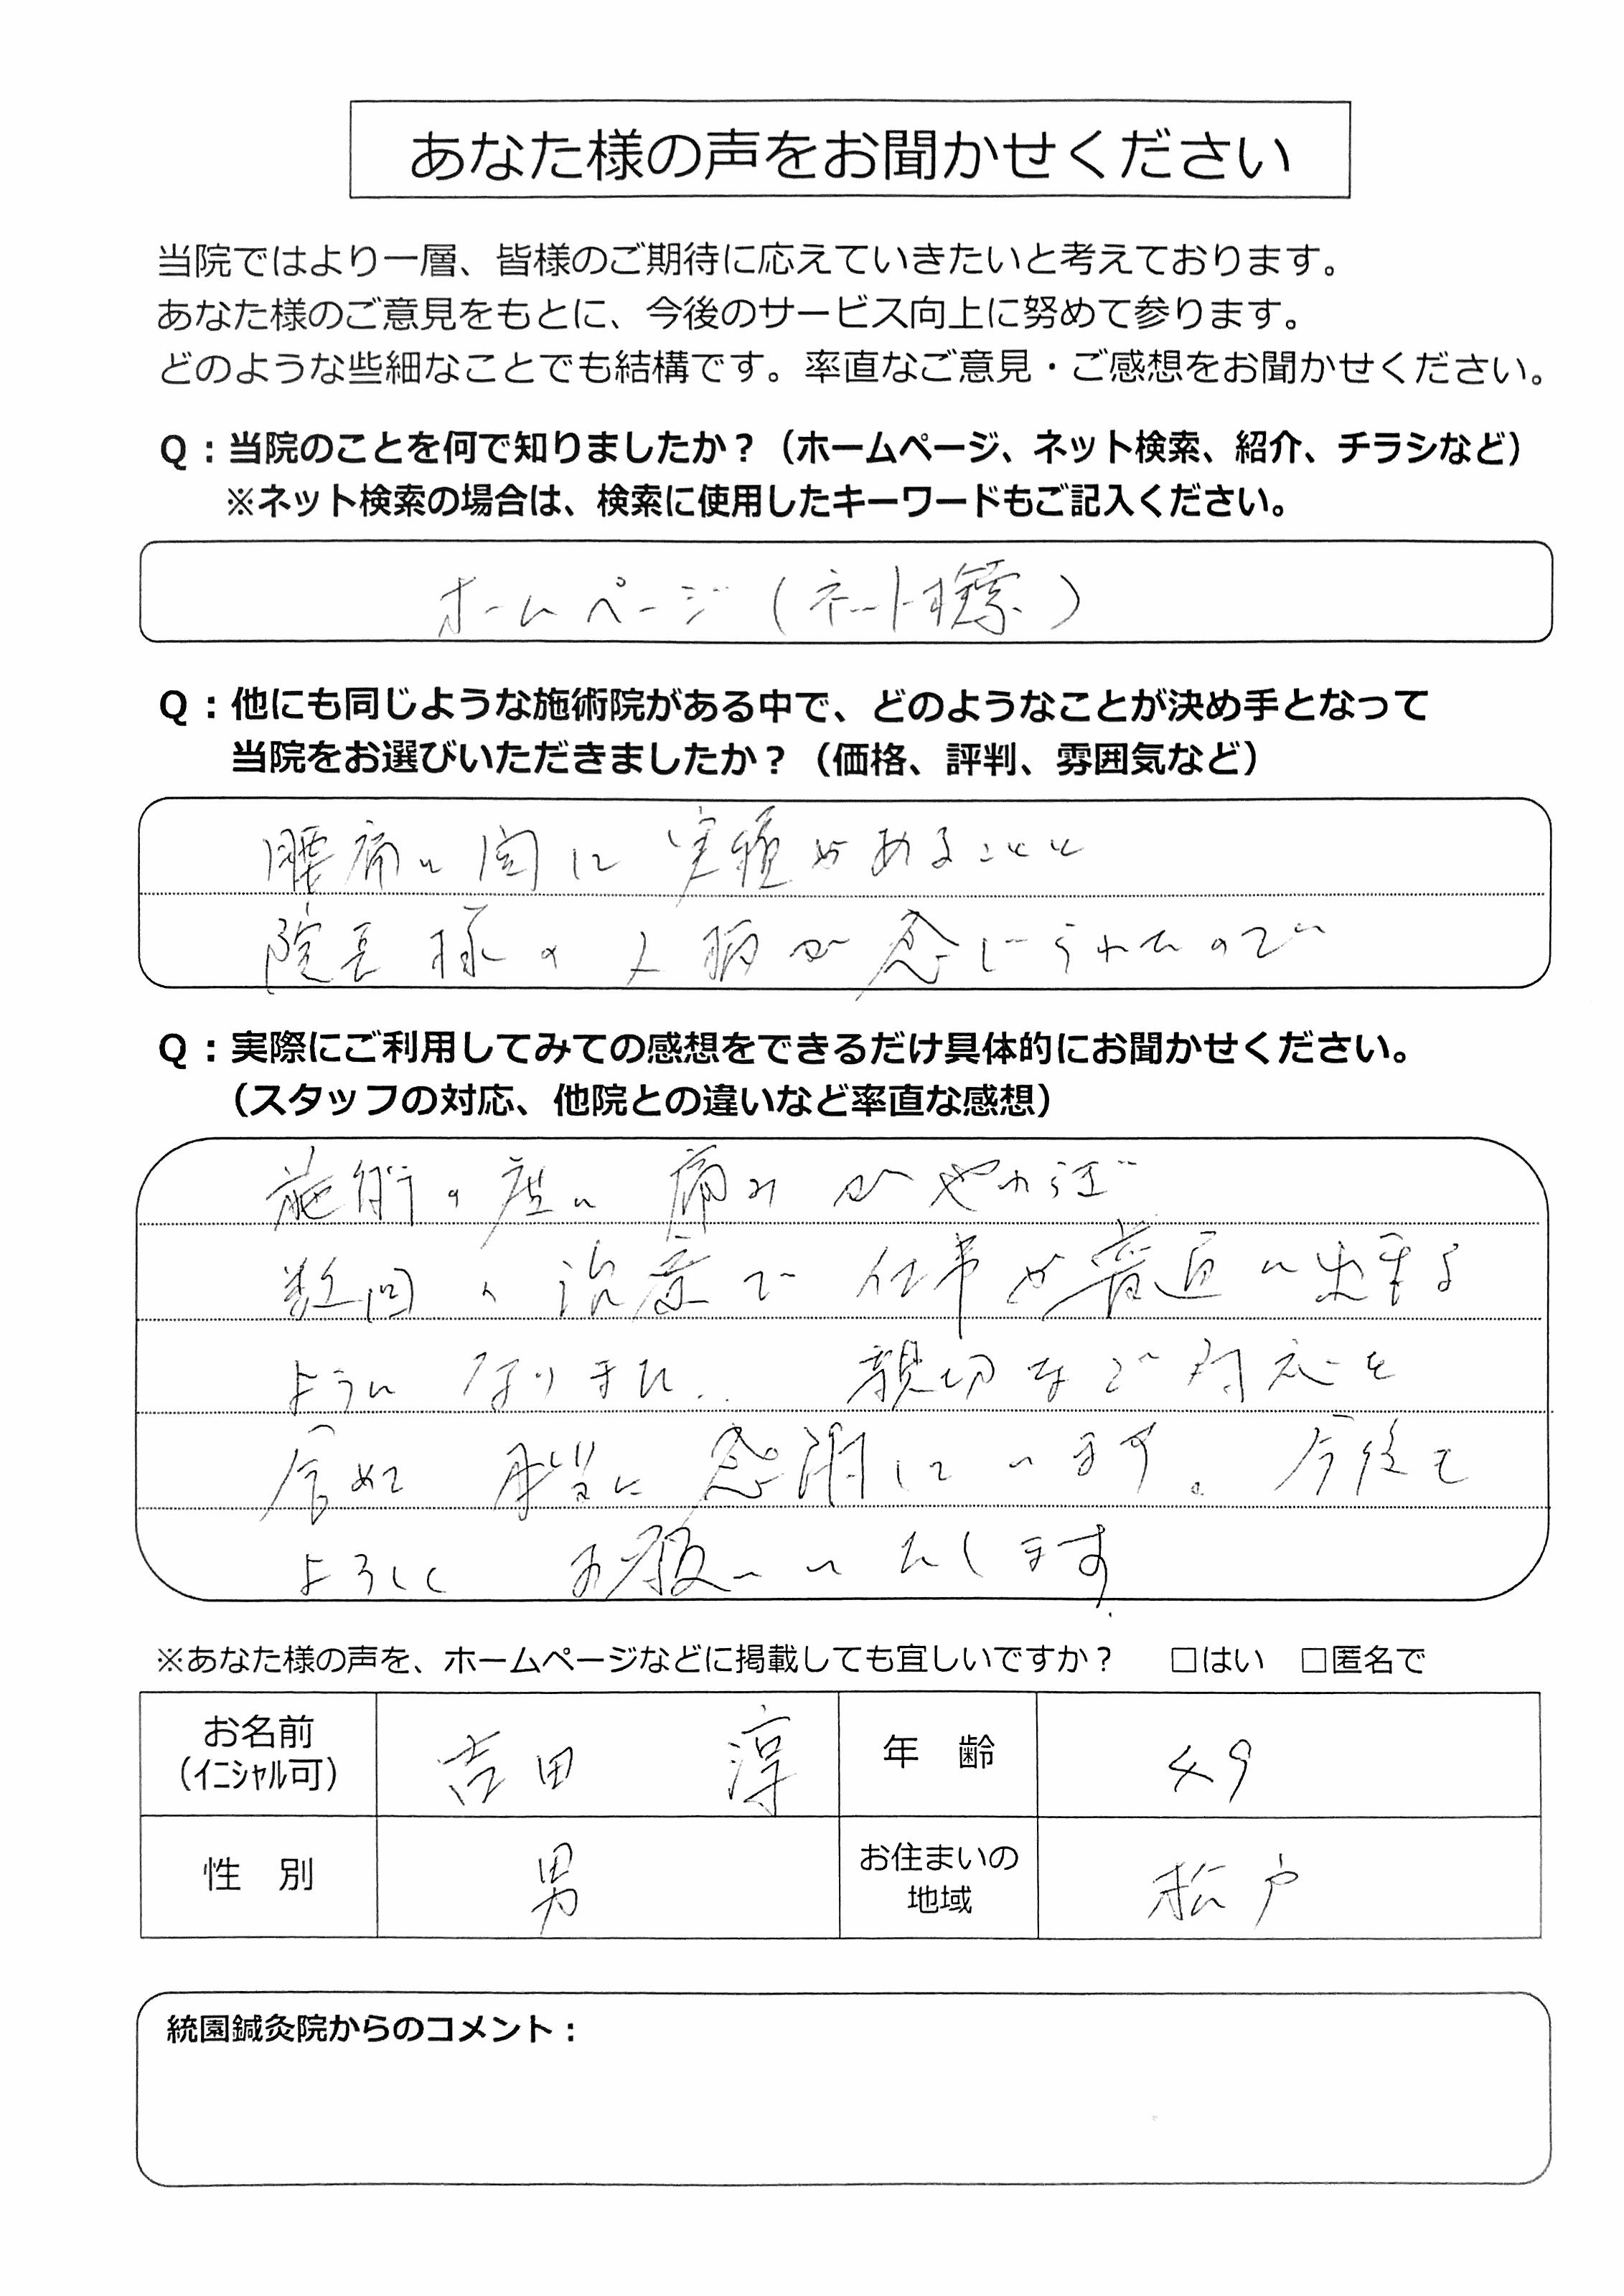 あなた様の声をお聞かせください
当院ではより一層、皆様のご期待に応えていきたいと考えております。
あなた様のご意見をもとに、今後のサービス向上に努めて参ります。
どのような些細なことでも結構です。率直なご意見・ご感想をお聞かせください。
Q：当院のことを何で知りましたか？（ホームページ、ネット検索、紹介、チラシなど）
※ネット検索の場合は、検索に使用したキーワードもご記入ください。
ホームページ（ネット検索）
Q：他にも同じような施術院がある中で、どのようなことが決め手となって
当院をお選びいただきましたか？（価格、評判、雰囲気など）
腰痛に関して実績があることと
院長様の人柄が感じられたので
Q：実際にご利用してみての感想をできるだけ具体的にお聞かせください。
（スタッフの対応、他院との違いなど率直な感想）
施術の度に痛みがやわらぎ
数回の治療で仕事が普通に出来る
ようになりました. 親切なご対応を
含めて本当に感謝しています。今後も
よろしくお願いいたします.
※あなた様の声を、ホームページなどに掲載しても宜しいですか？ □はい □匿名で
お名前 吉田 淳 年 齢 49
（イニシャル可）
性 別 男 お住まいの 松戸
地域
統園鍼灸院からのコメント：